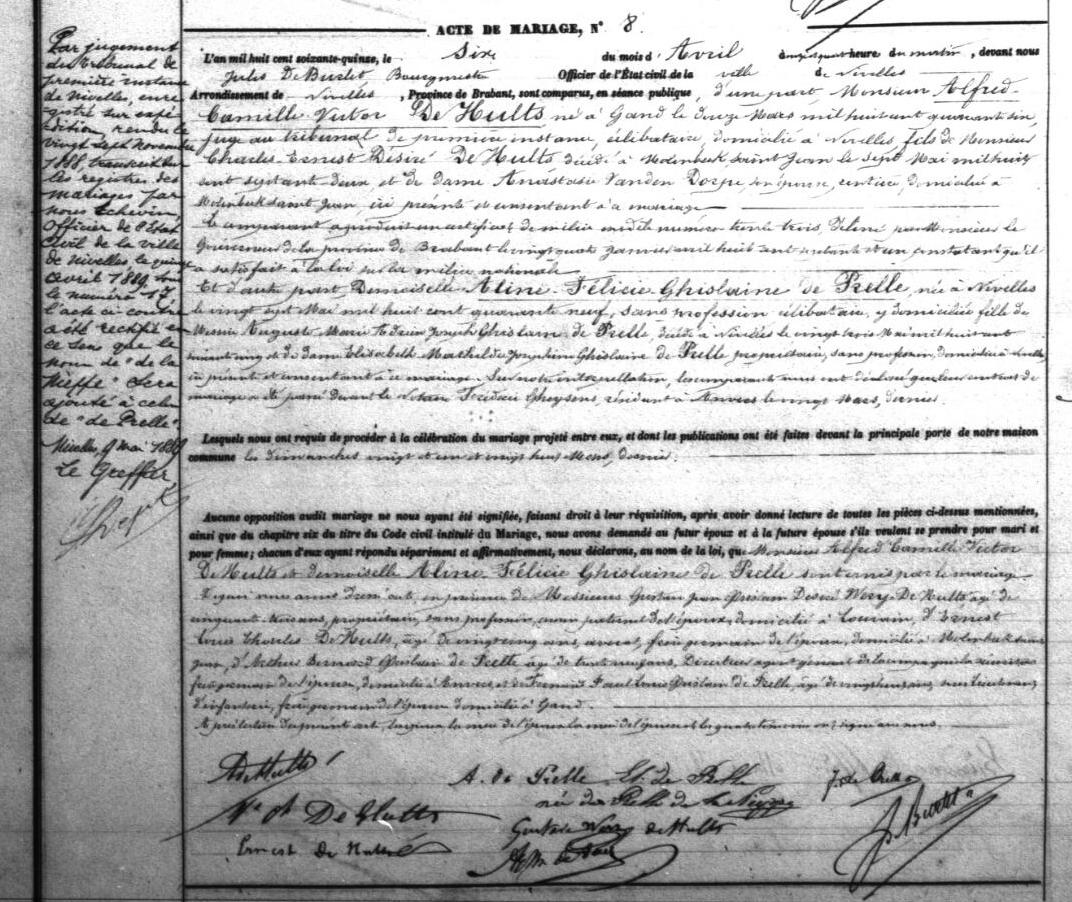 ACTE DE MARIAGE, N° 8
L'an mil huit cent soixante-quinze, le Six du mois d'Avril heure du matin, devant nous
Jules De Burlet Bourgmestre Officier de l'État civil de la ville de Nivelles
Arrondissement de Nivelles, Province de Brabant, sont comparus, en séance publique, d'une part, Monsieur Alfred-
Camille-Victor De Hults né à Gand le douze Mars mil huit cent quarante six,
juge au tribunal de première instance, célibataire, domicilié à Nivelles, fils de Monsieur
Charles-Ernest Désiré De Hults décédé à Molenbeek Saint Jean le sept Mai mil huit
cent septante deux, et de dame Anastasie Vanden Dorpe son épouse, rentière, domiciliée à
Molenbeek Saint Jean, ici présente et consentant à ce mariage
Le comparant a produit un certificat de milice modèle numéro trente trois, délivré par Monsieur le
Gouverneur de la province de Brabant le vingt quatre Janvier mil huit cent septante et un constatant qu'il
a satisfait à la loi sur la milice nationale.
Et d'autre part Demoiselle Aline-Félicie-Ghislaine de Prelle, née à Nivelles
le vingt sept Mai mil huit cent quarante neuf, sans profession célibataire, y domiciliée fille de
Messire Auguste Marie Adrien Joseph Ghislain de Prelle, décédé à Nivelles le vingt trois Mai mil huit cent
soixante cinq et de dame Elisabeth Mathilde Josephine Ghislaine de Prelle propriétaire, sans profession, domiciliée à Nivelles,
ici présente et consentant à ce mariage. Sur notre interpellation, les comparants nous ont déclaré que leur contrat de
mariage a été passé devant le Notaire Gheysens, résidant à Anvers le vingt Mars, dernier.
Lesquels nous ont requis de procéder à la célébration du mariage projeté entre eux, et dont les publications ont été faites devant la principale porte de notre maison
commune les dimanches vingt et un et vingt huit Mars, dernier.
Aucune opposition audit mariage ne nous ayant été signifiée, faisant droit à leur réquisition, après avoir donné lecture de toutes les pièces ci-dessus mentionnées,
ainsi que du chapitre six du titre du Code civil intitulé du Mariage, nous avons demandé au futur époux et à la future épouse s'ils veulent se prendre pour mari et
pour femme; chacun d'eux ayant répondu séparément et affirmativement, nous déclarons, au nom de la loi, que Monsieur Alfred Camille Victor
De Hults et demoiselle Aline-Félicie Ghislaine de Prelle sont unis par le mariage
De quoi nous avons dressé acte, en présence de Messieurs Gustave Jean Désiré Wery-De Hults âgé de
cinquante trois ans, propriétaire, sans profession, oncle paternel de l'époux, domicilié à Louvain, d'Ernest
Louis Charles De Hults, âgé de vingt cinq ans, avocat, frère germain de l'époux, domicilié à Molenbeek Saint
Jean, d'Arthur Bernard Ghislain de Prelle âgé de trente ans, Directeur agent gérant de la compagnie
frère germain de l'épouse, domicilié à Anvers, et de Fernand Paul Louis Ghislain de Prelle, âgé de vingt ans, sous Lieutenant
d'infanterie, frère germain de l'épouse domicilié à Gand.
Après lecture du présent acte, les époux la mère de l'époux la mère de l'épouse et les quatre témoins ont signé avec nous.
A De Hults
A. de Prelle
El. de Prelle
née de Prelle de la Nieppe
De Hults
Gustave Wery de Hults
Ernest De Hults
J. De Burlet
Par jugement
du Tribunal de
première instance
de Nivelles, enre-
gistré sur expé-
dition, rendu le
vingt sept novembre
1888 transcrit sur
les registres des
mariages par
nous Echevin,
Officier de l'Etat
Civil de la ville
de Nivelles le quinze
avril 1889, sous
le numéro 17,
l'acte ci-contre
a été rectifié en
ce sens que le
nom de "de la
Nieppe" sera
ajouté à celui
de "de Prelle".
Nivelles, 9 Mai 1889
Le Greffier,